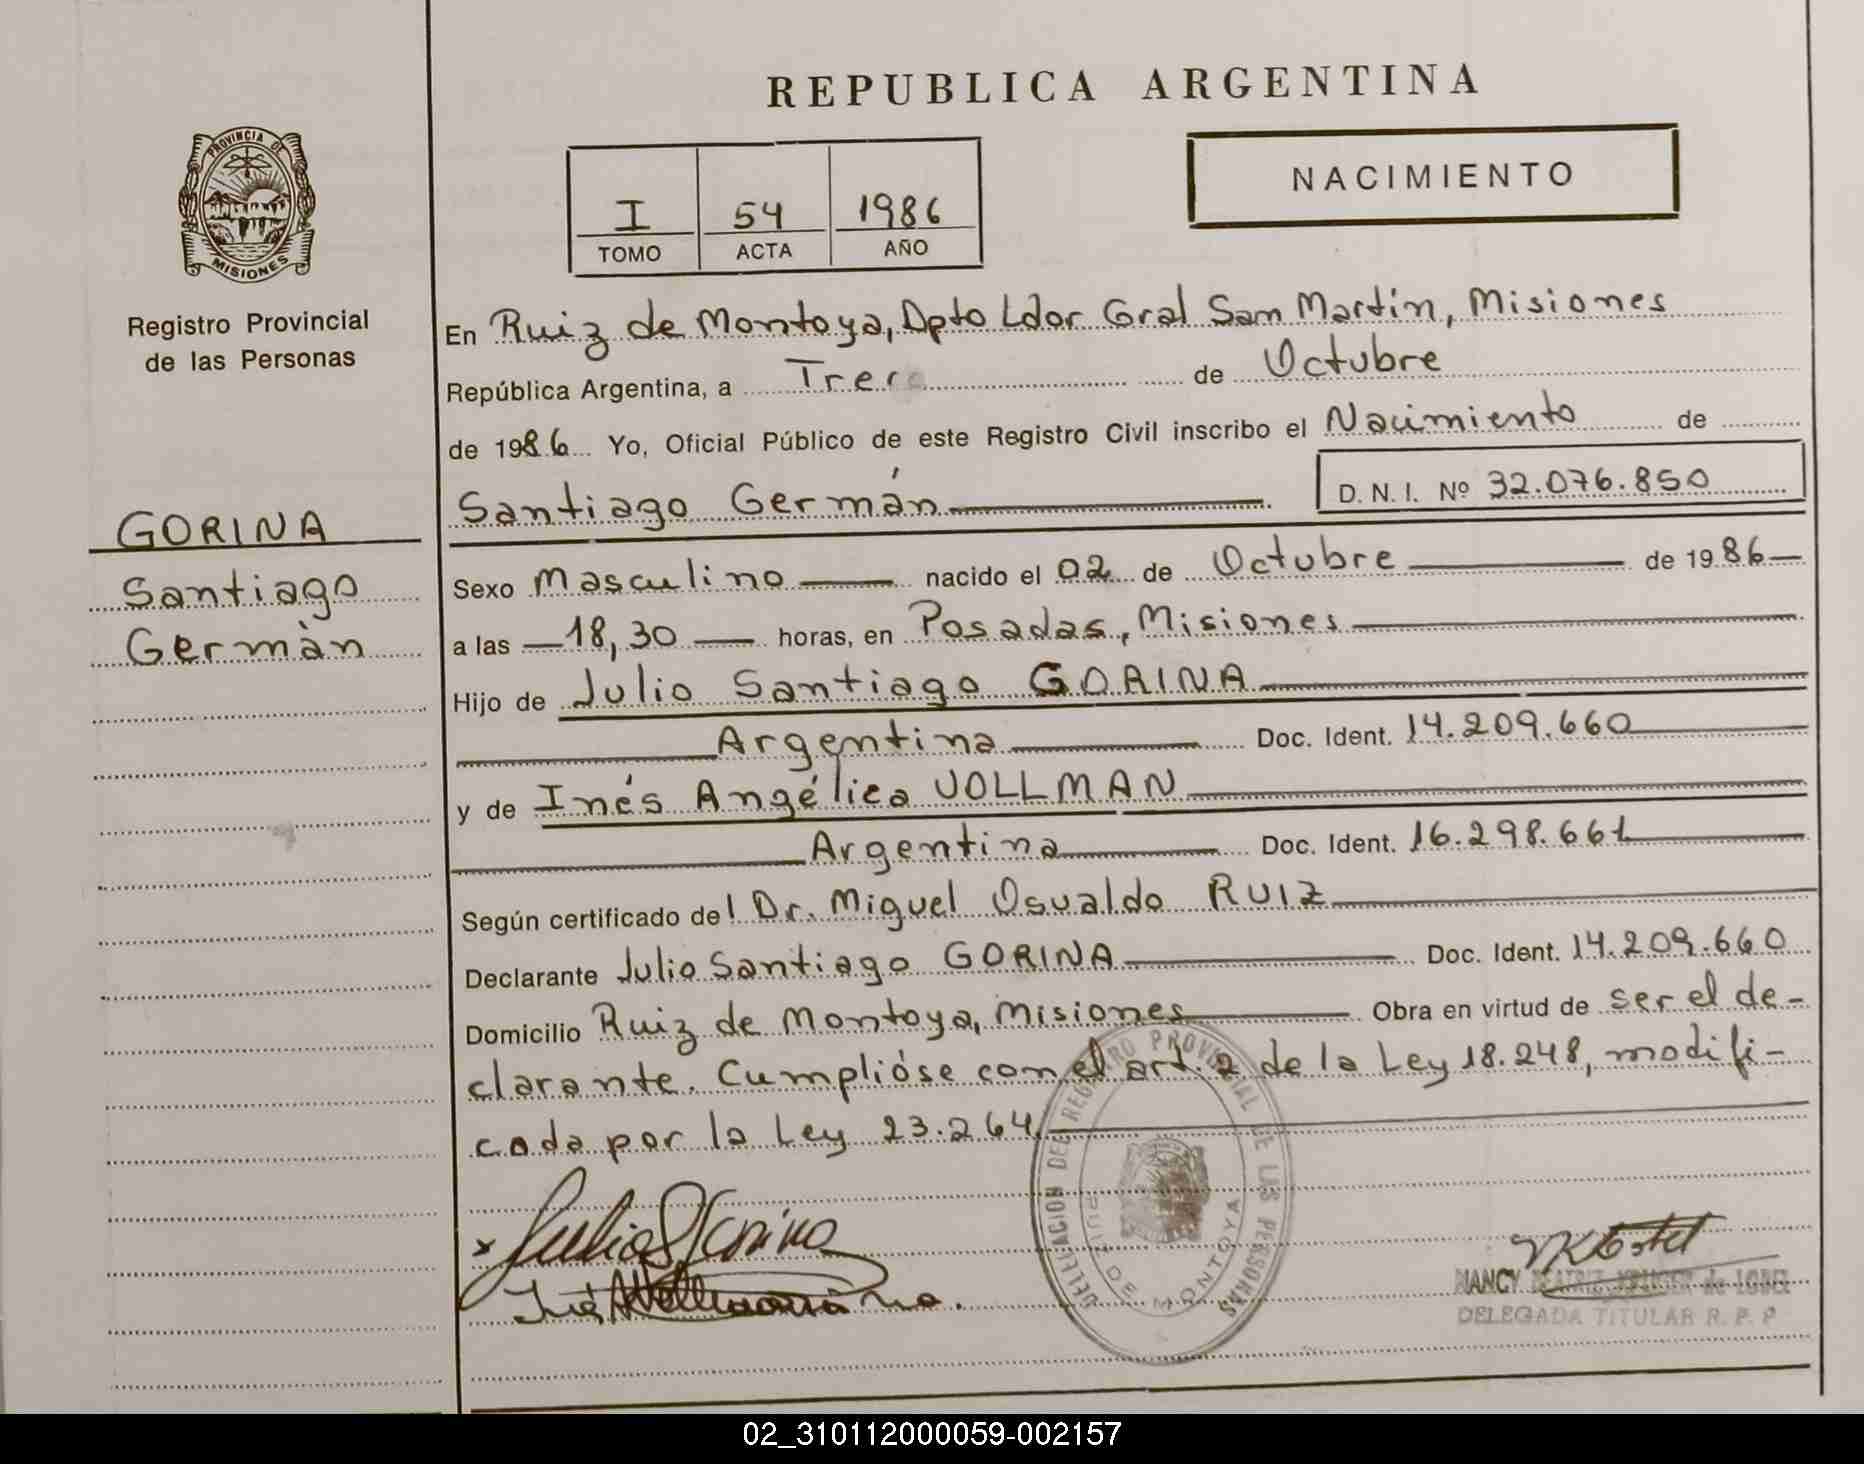 REPUBLICA ARGENTINA
PROVINCIA DE
MISIONES
Registro Provincial
de las Personas
I 54 1986
TOMO ACTA AÑO
NACIMIENTO
En Ruiz de Montoya, Dpto Ldor Gral San Martín, Misiones
República Argentina, a de Octubre
de 1986 Yo, Oficial Público de este Registro Civil inscribo el Nacimiento de
Santiago Germán
D. N. I. Nº 32.076.850
GORINA
Santiago
Germàn
Sexo Masculino nacido el 02 de Octubre de 1986
a las 18,30 horas, en Posadas, Misiones
Hijo de Julio Santiago GORINA
Argentina Doc. Ident. 14.209.660
y de Inés Angélica VOLLMAN
Argentina Doc. Ident. 16.298.661
Según certificado del Dr. Miguel Osvaldo RUIZ
Declarante Julio Santiago GORINA Doc. Ident. 14.209.660
Domicilio Ruiz de Montoya, Misiones Obra en virtud de ser el de-
clarante. Cumplióse con el art. 2 de la Ley 18.248, modifi-
cada por la Ley 23.264.
DELEGACION DEL REGISTRO PROVINCIAL DE LAS PERSONAS
RUIZ DE MONTOYA
NANCY BEATRIZ de
DELEGADA TITULAR R. P. P
02_310112000059-002157